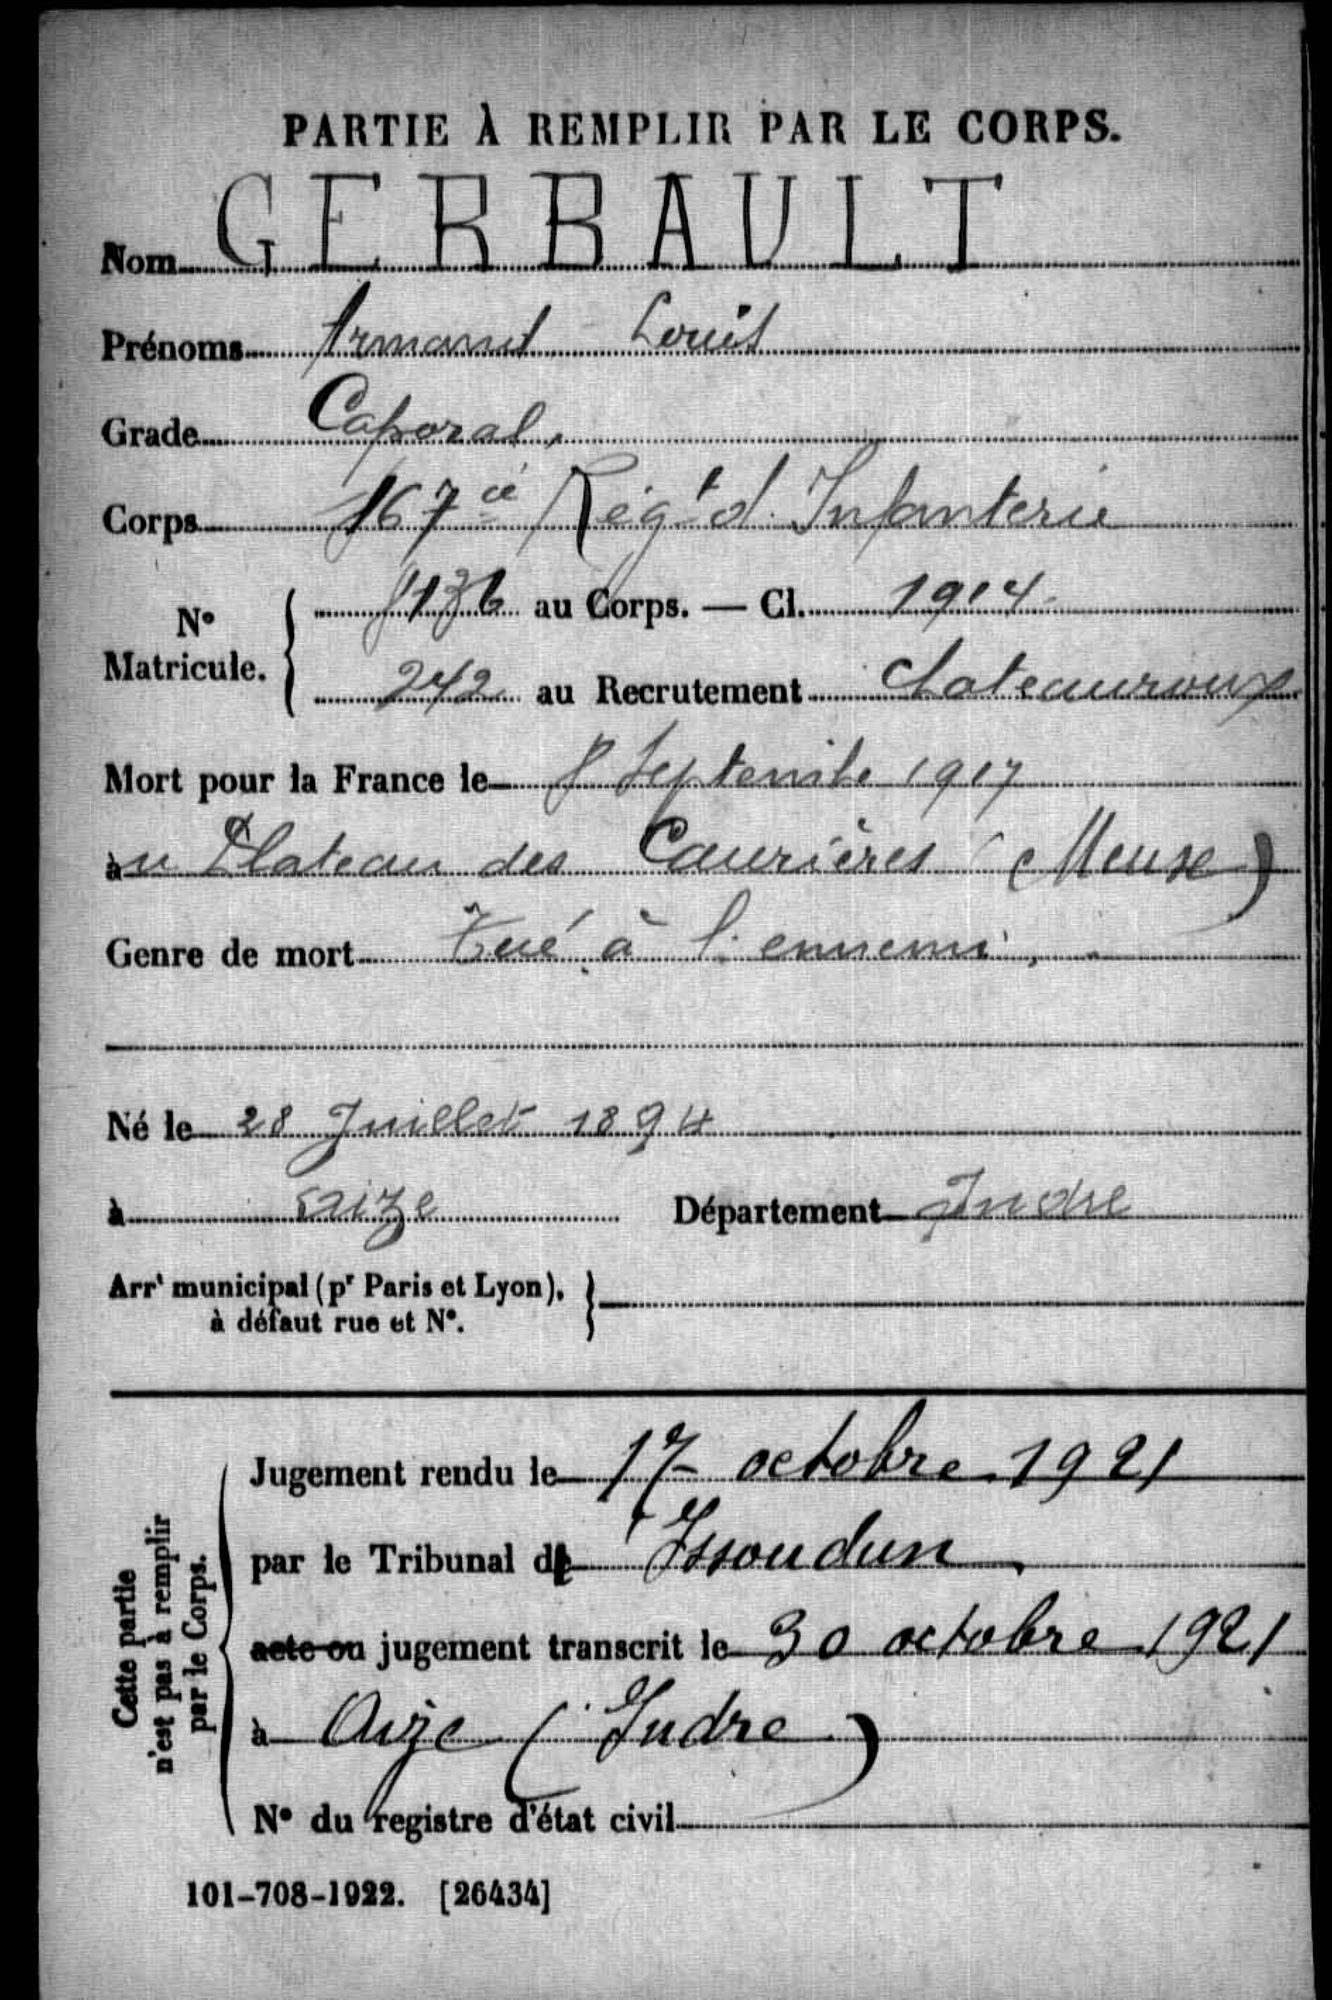 PARTIE À REMPLIR PAR LE CORPS.
Nom GERBAULT
Prénoms Armand Louis
Grade Caporal.
Corps 167ie Régt d'Infanterie
No Matricule. { 8136 au Corps. — Cl. 1914
242 au Recrutement Chateauroux
Mort pour la France le 8 Septembre 1917
au Plateau des Caurières (Meuse)
Genre de mort Tué à l'ennemi
Né le 28 Juillet 1894
à Aize Département Indre
Arrt municipal (pr Paris et Lyon),
à défaut rue et No.
Cette partie
n'est pas à remplir
par le Corps.
Jugement rendu le 17 octobre 1921
par le Tribunal d' Issoudun
acte ou jugement transcrit le 30 octobre 1921
à Aize (Indre)
No du registre d'état civil
101-708-1922. [26434]